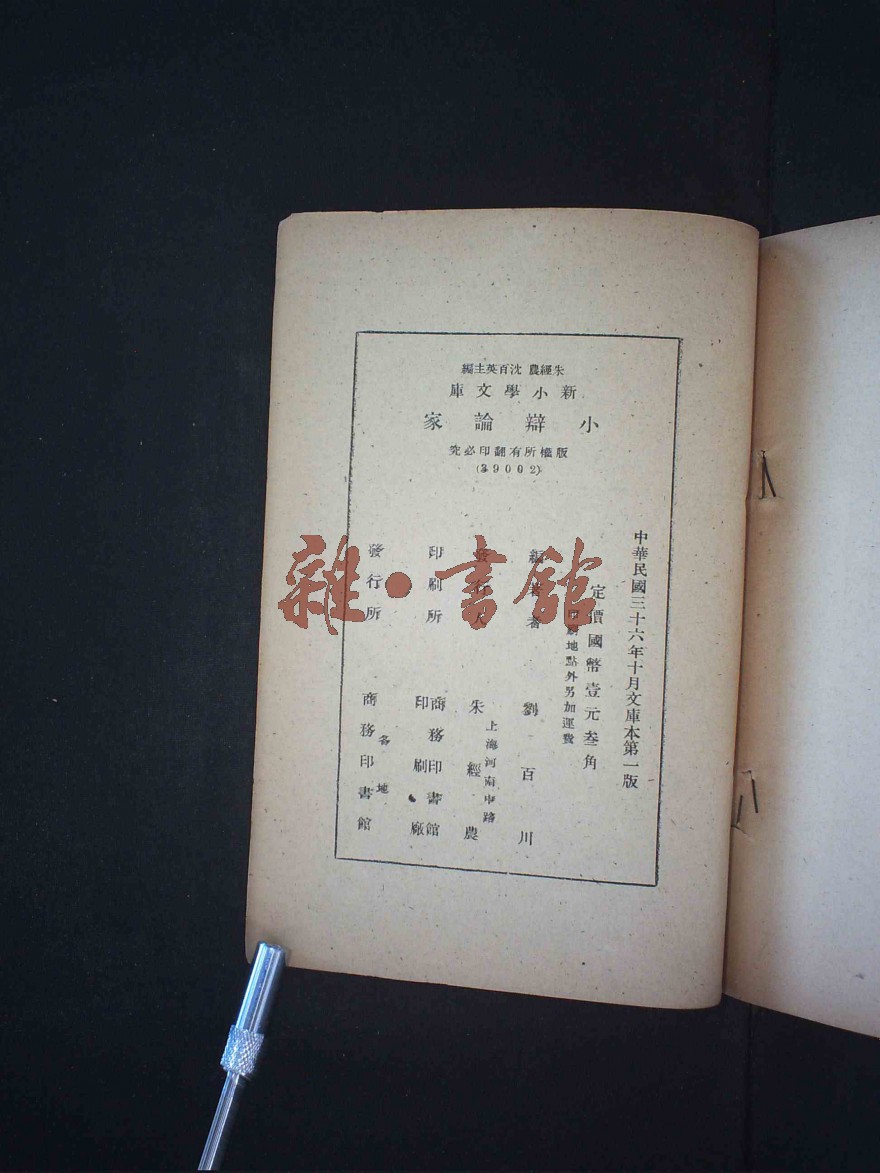 朱經農 沈百英主編
新小學文庫
小辯論家
版權所有翻印必究
(39002)
中華民國三十六年十月文庫本第一版
定價國幣壹元叁角
印刷地點外另加運費
編著者 劉百川
發行人 朱經農
上海河南中路
印刷所 商務印書館印刷廠
發行所 商務印書館
各地
雜·書館